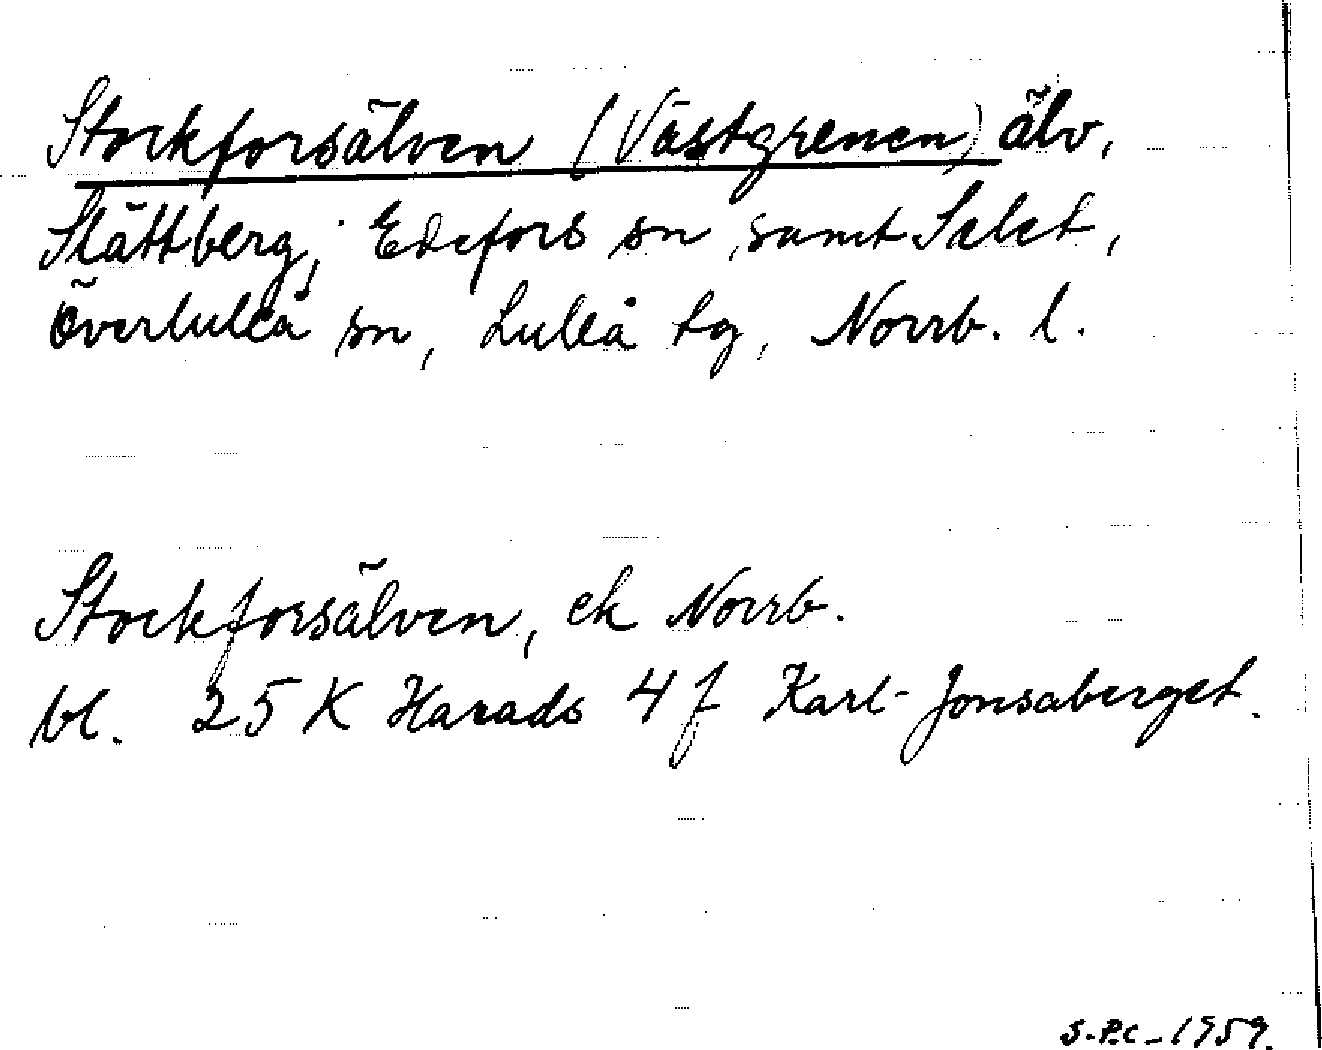 Stockforsälven (Västgrenen) älv,
Slättberg, Edefors sn samt Selet,
Överluleå sn, Luleå tg, Norrb. l.
Stockforsälven, ek Norrb.
bl. 25 K Harads 4 f Karl-Jonsaberget.
S.P.C. - 1959.